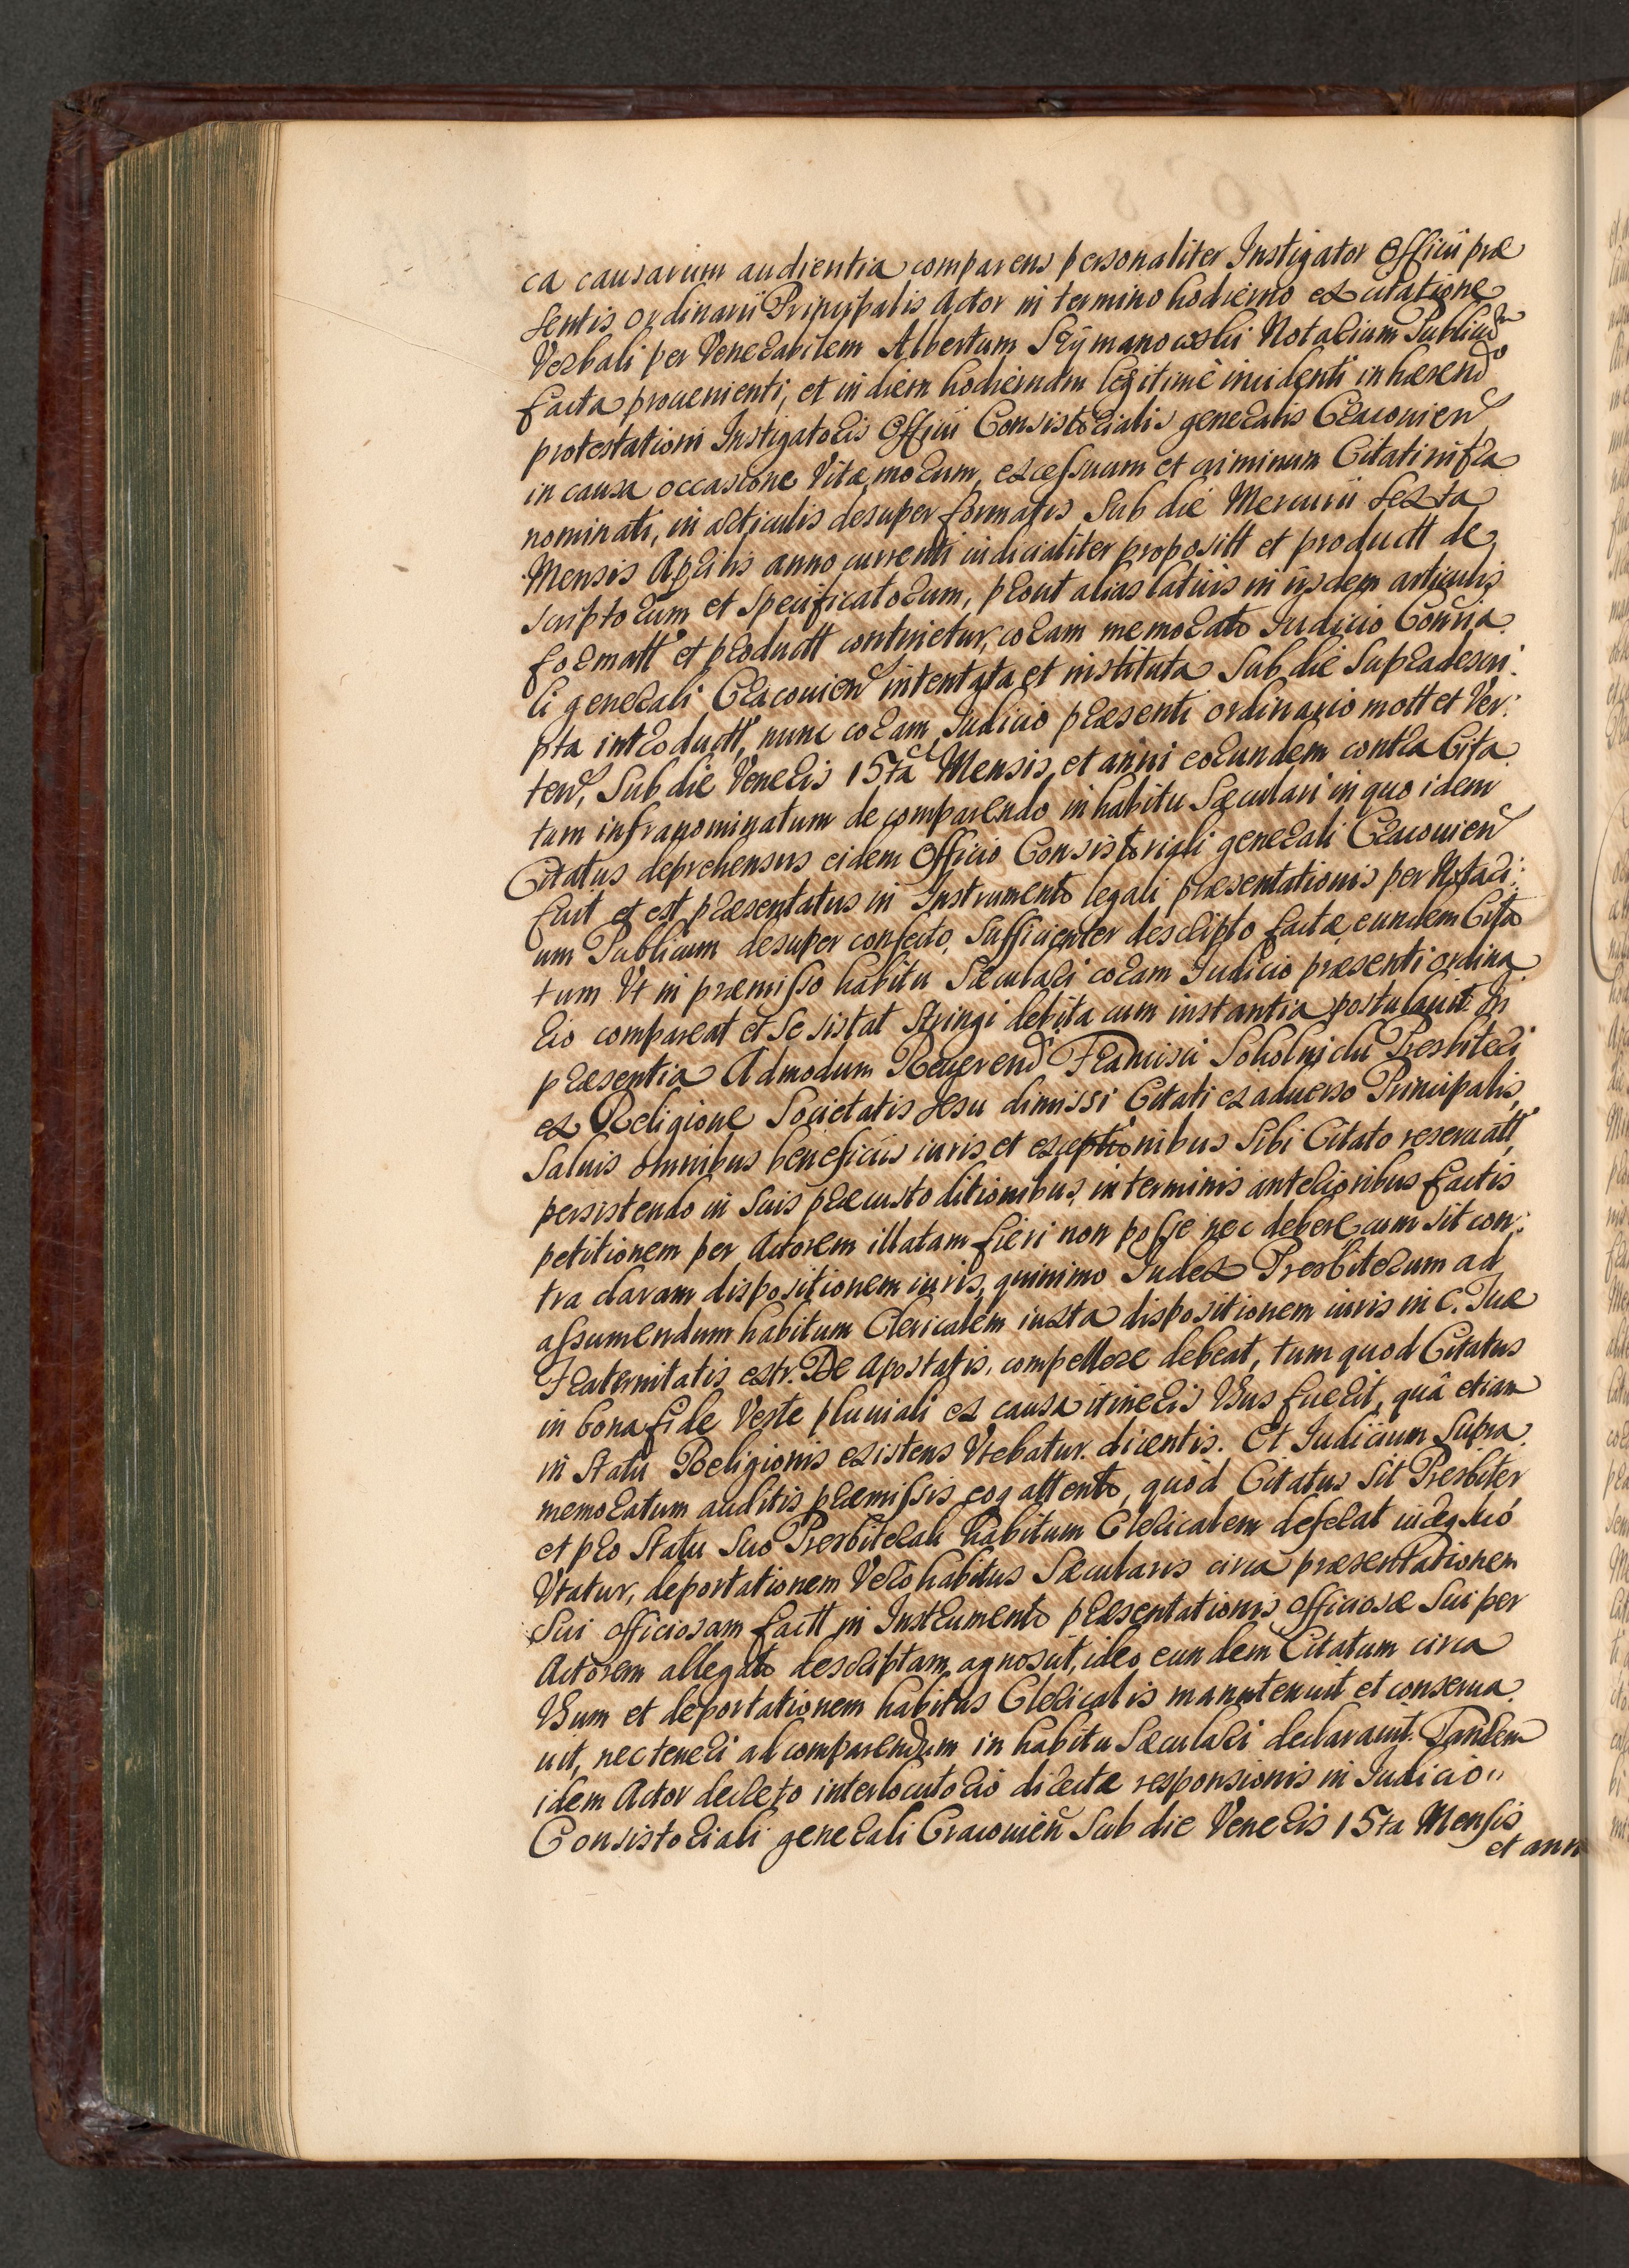 ca causarum audientia comparens personaliter Instigator Officii præ
sentis ordinarii Principalis Actor in termino hodierno ex citatione
Verbali per Venerabilem Albertum Szÿmanowski Notarium Publicum
facta proueniente, et in diem hodiernam legitimè incidenti inhærendo
protestationi Instigatoris Officii Consistorialis generalis Cracouien
in causa occasione Vitæ, morum, excessuum et criminum Citati infra
nominati, in articulis desuper formatis Sub die Mercurii sexta
Mensis Aprilis anno currenti iudicialiter propositt et productt de
scriptorum et specificatorum, prout alias latius in iisdem articulis
formatt et productt continetur, coram memorato Iudicio Consistoria
li generali Cracouien intentata et instituta Sub die Supradescri:
pta introductt, nunc coram Iudicio præsenti ordinario mott et Ver:
ten, Sub die Veneris 15ta Mensis et anni eorundem contra Cita
tum infranominatum de comparendo in habitu Sæculari in quo idem
Citatus deprehensus eidem Officio Consistoriali generali Cracouien
fuit et est præsentatus in Instrumento legali præsentationis per Notari:
um Publicum desuper confecto, Sufficienter descripto facta, eundem Cita
tum Vt in præmisso habitu Sæculari coram Iudicio præsenti ordina
rio compareat et Se sistat Stringi debita cum instantia postulauit In
præsentia Admodum Reuerend Francisci Sokolnicki Presbiteri
ex Religione Societatis Jesu dimissi Citati ex aduerso Principalis,
Saluis omnibus beneficiis iuris et exceptionibus Sibi Citato reseruatt,
persistendo in Suis præcustoditionibus, in terminis anterioribus factis
petitionem per Actorem illatam fieri non posse nec debere cum sit con:
tra claram dispositionem iuris, quinimo Iudex Presbiterum ad
assumendum habitum Clericalem iuxta dispositionem iuris in C. Tuæ
Fraternitatis extr. De Apostatis, compellere debeat, tum quod Citatus
in bona fide Veste pluuiali ex causa itineris Vsus fuerit, quâ etiam
in Statu Religionis existens Vtebatur. dicentis. Et Iudicium Supra
memoratum auditis præmissis eoq attento, quòd Citatus Sit Presbiter
et pro Statu Suo Presbiterali habitum Clericalem deferat indeque
Vtatur, deportationem Vero habitus Sæcularis circa præsentationem
Sui officiosam factt in Instrumento præsentationis officiosæ Sui per
Actorem allegato descriptam agnoscit, ideo eundem Citatum circa
Vsum et deportationem habitus Clericalis manutenuit et conserua
uit, nec teneri ad comparendum in habitu Sæculari declarauit. Tandem
idem Actor decreto interlocutorio directæ responsionis in Iudicio
Consistoriali generali Cracouien Sub die Veneris 15ta Mensis
et ann